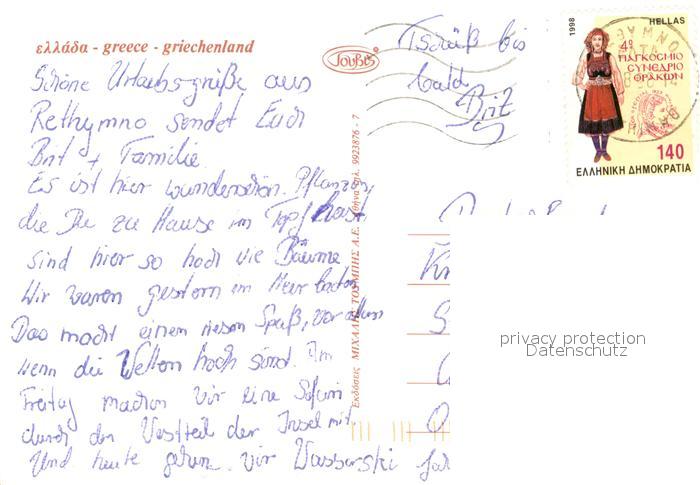 ελλάδα - greece - griechenland
Schöne Urlaubsgrüße aus
Rethymno sendet Euch
Brit + Familie.
Es ist hier wunderschön. Pflanzen,
die Du zu Hause im Topf hast,
sind hier so hoch wie Bäume
Wir waren gestern im Meer baden
Das macht einem riesen Spaß, vor allem
wenn die Wellen hoch sind. Am
Freitag machen wir eine Safari
durch den Westteil der Insel mit.
Und heute gehen wir Wasserski
Tschüß bis
bald
Brit
Τουβις
Εκδόσεις ΜΙΧΑΛΗΣ ΤΟΥΜΠΗΣ Α.Ε. Αθήνα τηλ. 9923876 - 7
1998
HELLAS
4º
ΠΑΓΚΟΣΜΙΟ
ΣΥΝΕΔΡΙΟ
ΘΡΑΚΩΝ
140
ΕΛΛΗΝΙΚΗ ΔΗΜΟΚΡΑΤΙΑ
privacy protection
Datenschutz